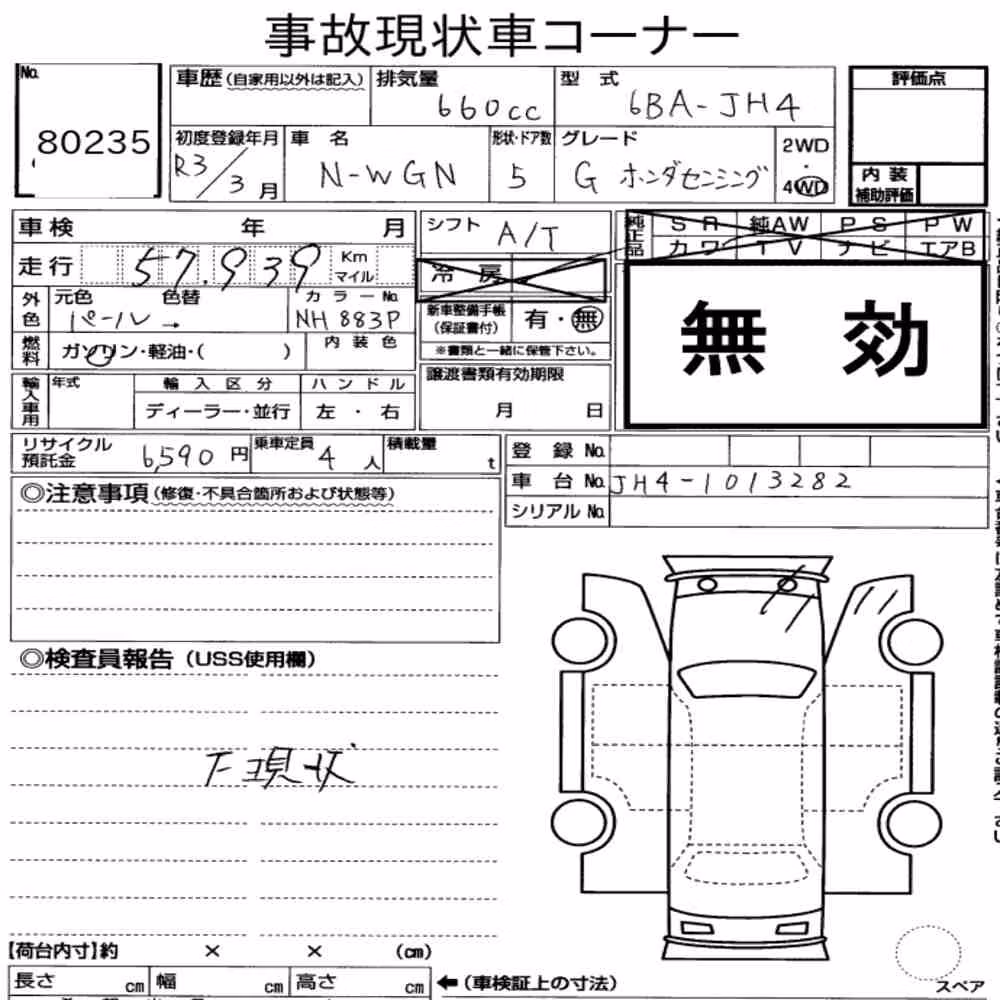 事故現状車コーナー
No.
80235
車歴(自家用以外は記入)
排気量
660cc
型 式
6BA-JH4
評価点
初度登録年月
R3/3月
車 名
N-WGN
形状・ドア数
5
グレード
G ホンダセンシング
2WD
・
4WD
内 装
補助評価
車検 年 月
シフト
A/T
純正品
S R 純AW P S P W
カ ワ T V ナ ビ エアB
走行
57,939
Km
マイル
冷 房
外色
元色 色替
パール→
カラーNo.
NH883P
新車整備手帳
(保証書付)
有・無
※書類と一緒に保管下さい。
無 効
燃料
ガソリン・軽油・( )
内 装 色
輸入車用
年式
輸 入 区 分
ディーラー・並行
ハ ン ド ル
左 ・ 右
譲渡書類有効期限
月 日
リサイクル
預託金
6,590円
乗車定員
4人
積載量
t
登 録 No.
車 台 No. JH4-1013282
シリアル No.
◎注意事項(修復・不具合箇所および状態等)
◎検査員報告(USS使用欄)
下現状
【荷台内寸】約 × × (cm)
長さ cm 幅 cm 高さ cm
←(車検証上の寸法)
スペア